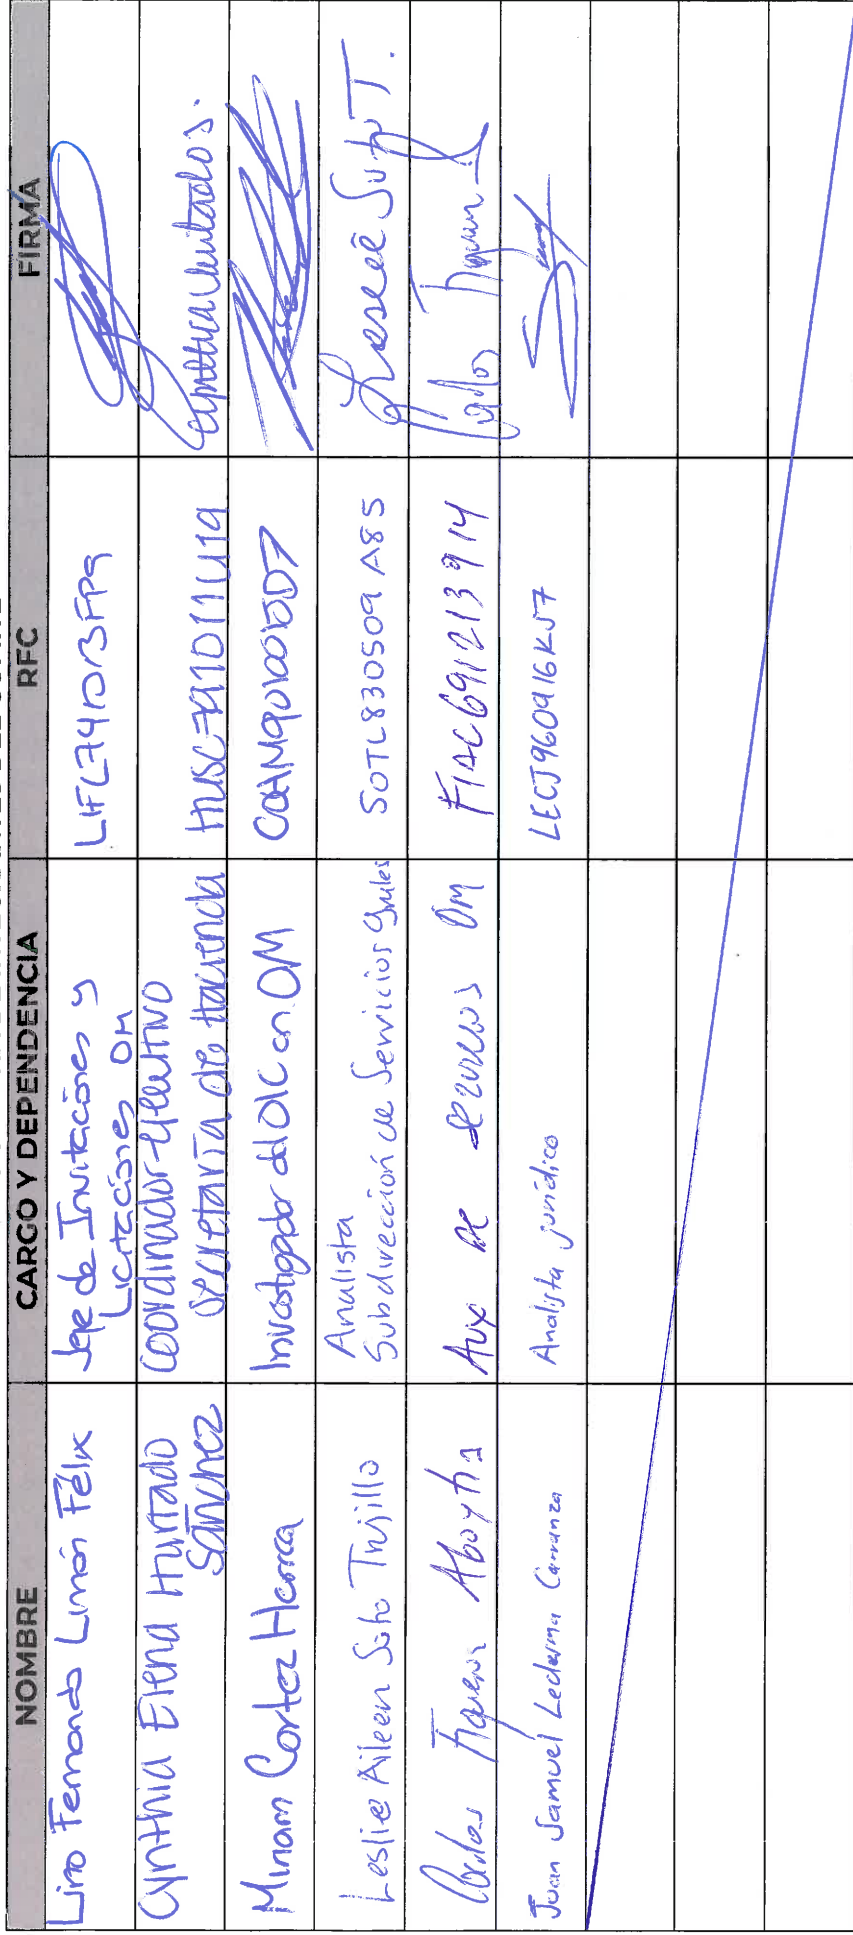 NOMBRE CARGO Y DEPENDENCIA RFC FIRMA
Lino Fernando Limón Félix
Jefe de Invitaciones y
Licitaciones OM
Cynthia Elena Hurtado
Sánchez
Coordinador Ejecutivo
Secretaría de Hacienda
HUSC791011U19
Miriam Cortez Herrera
Investigador del OIC en OM
Leslie Aileen Soto Trujillo
Analista
Subdirección de Servicios Grales
SOTL830509A85
Leslie Soto T.
Carlos Figueroa Aboytia
Aux de servicios OM
FIAC691213914
Carlos Figueroa
Juan Samuel Ledezma Carranza
Analista jurídico
LECJ960916KJ7